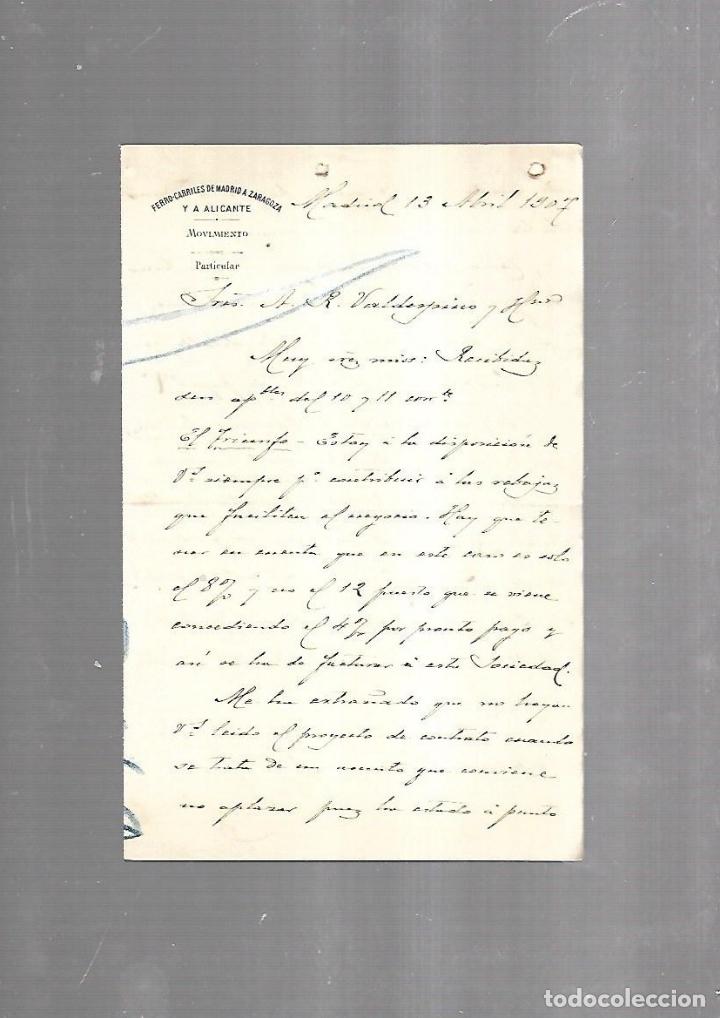 FERRO-CARRILES DE MADRID A ZARAGOZA
Y A ALICANTE
MOVIMIENTO
Particular
Madrid 13 Abril 1907
Sres. A. R. Valdespino y Hno
Muy Sres mios: Recibidas
sus apbles del 10 y 11 corrte
El Triunfo - Estoy á la disposición de
Vs siempre pa contribuir á las rebajas
que faciliten el negocio. Hay que te-
ner en cuenta que en este caso es solo
el 8% y no el 12 puesto que se viene
concediendo el 4% por pronto pago y
así se ha de facturar á esta Sociedad.
Me ha extrañado que no hayan
Vs leido el proyecto de contrato cuando
se trata de un asunto que conviene
no aplazar pues ha estado á punto
todocoleccion.net